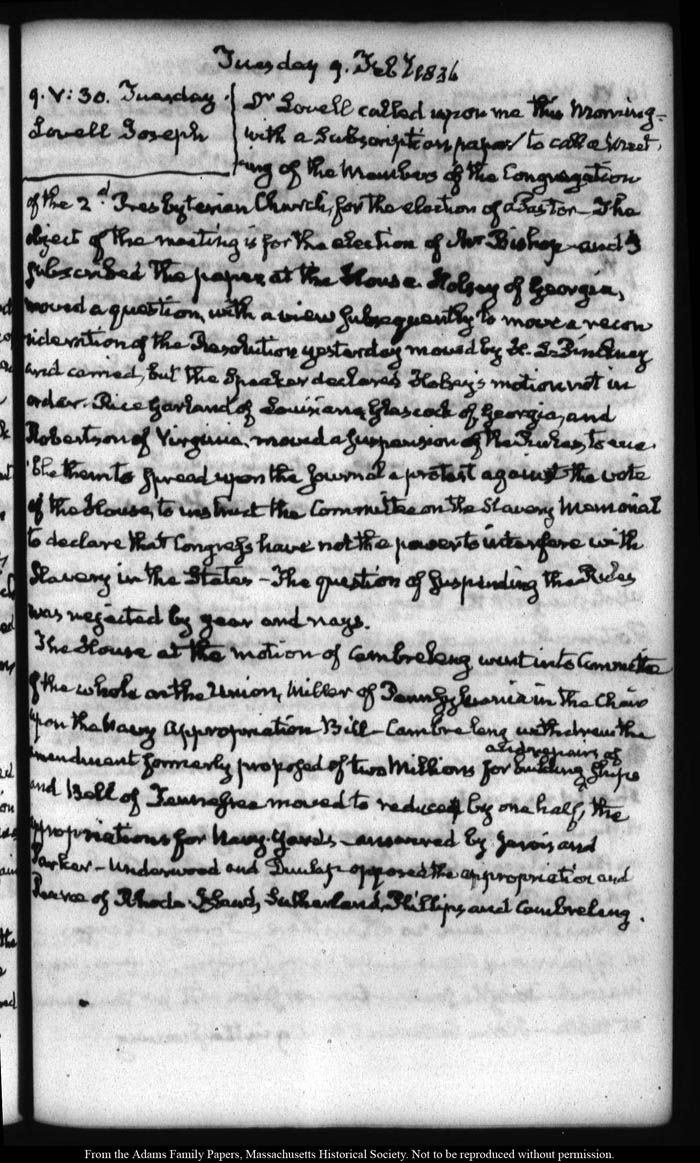 Tuesday 9. Feby 1836
9. V:30. Tuesday
Lovell Joseph
Dr Lovell called upon me this Morning-
with a Subscription paper to call a Meet,
,ing of the Members of the Congregation
of the 2d Presbyterian Church, for the election of a Pastor - The
object of the meeting is for the election of Mr Bishop and I
subscribed the paper at the House. Holsey of Georgia,
moved a question, with a view subsequently to move a recon
sideration of the Resolution yesterday moved by H. L. Pinckney
and carried, but the Speaker declared Holsey's motion not in
order. Rice Garland of Louisiana, Glascock of Georgia, and
Robertson of Virginia, moved a suspension of the Rules, to ena.
'ble them to spread upon the Journal a protest against the vote
of the House, to instruct the Committee on the Slavery Memorial
to declare that Congress have not the power to interfere with
Slavery in the States - The question of suspending the Rules
was rejected by yeas and nays.
The House at the motion of Cambreleng went into Committee
of the whole on the Union, Miller of Pennsylvania in the Chair
upon the Navy Appropriation Bill - Cambreleng withdrew the
amendment formerly proposed of two Millions for building and repairs of Ships
and Bell of Tennessee moved to reduce by one half, the
appropriations for Navy-Yards - answered by Jarvis and
Parker - Underwood and Dunlap opposed the appropriation and
Pearce of Rhode Island, Sutherland, Phillips and Cambreleng.
From the Adams Family Papers, Massachusetts Historical Society. Not to be reproduced without permission.